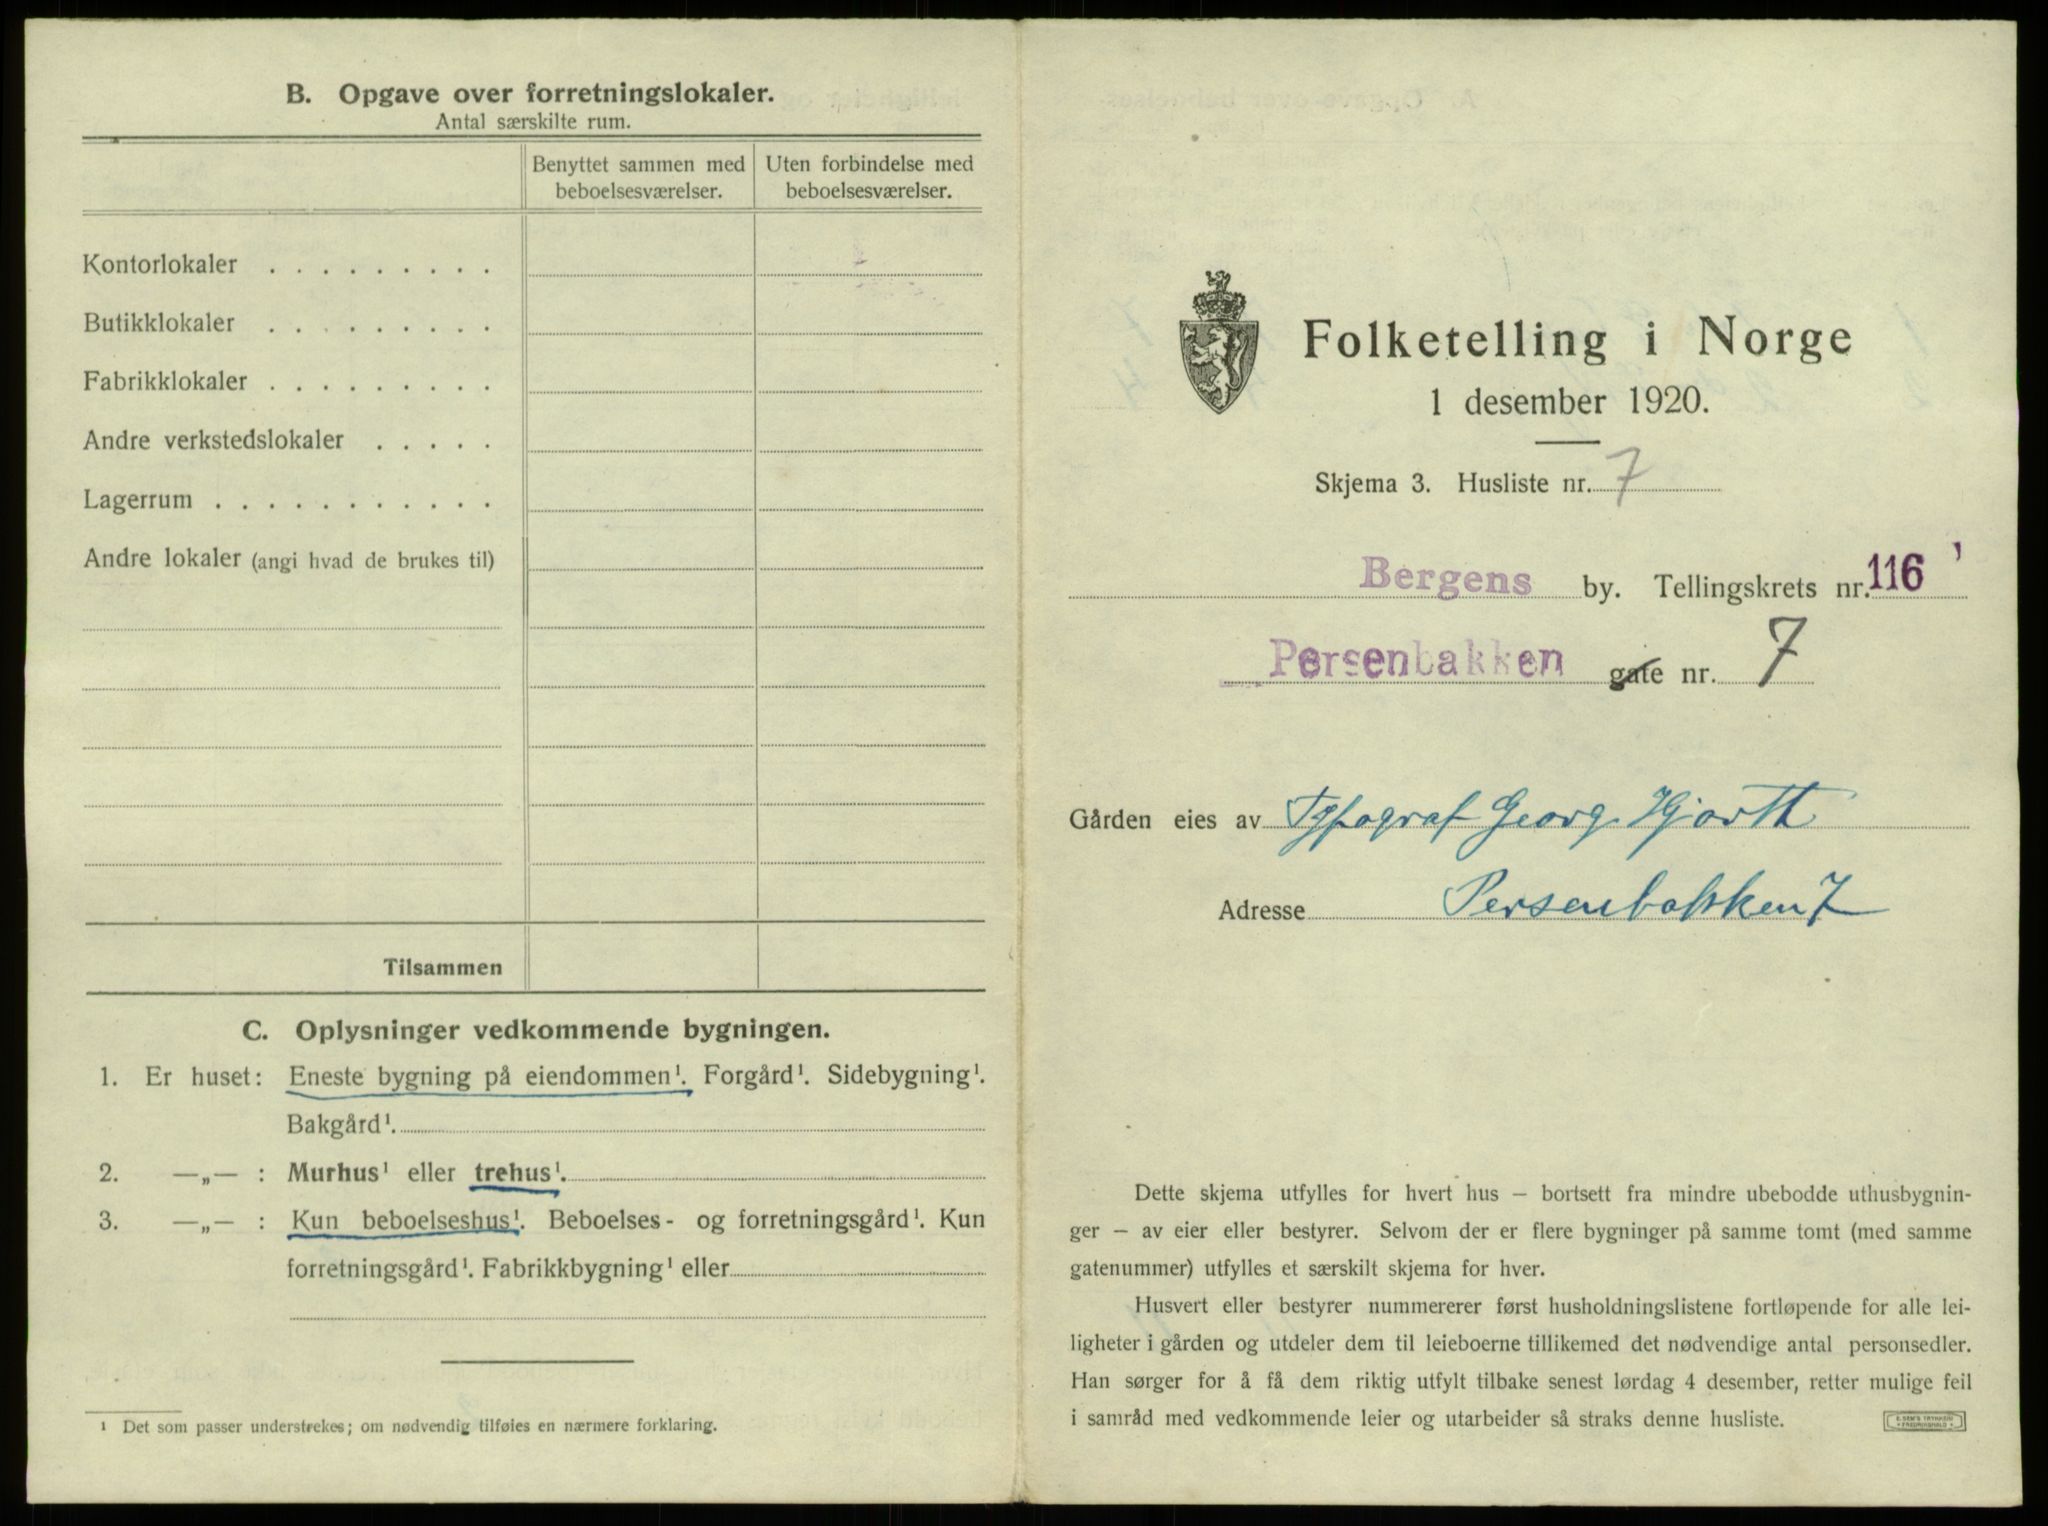 B. Opgave over forretningslokaler.
Antal særskilte rum.
Benyttet sammen med beboelsesværelser.
Uten forbindelse med beboelsesværelser.
Kontorlokaler . . . . . . . . .
Butikklokaler . . . . . . . . .
Fabrikklokaler . . . . . . . . .
Andre verkstedslokaler . . . . .
Lagerrum . . . . . . . . . . .
Andre lokaler (angi hvad de brukes til)
Tilsammen
C. Oplysninger vedkommende bygningen.
1. Er huset: Eneste bygning på eiendommen¹. Forgård¹. Sidebygning¹.
Bakgård¹.
2. —„— : Murhus¹ eller trehus¹.
3. —„— : Kun beboelseshus¹. Beboelses- og forretningsgård¹. Kun
forretningsgård¹. Fabrikkbygning¹ eller
¹ Det som passer understrekes; om nødvendig tilføies en nærmere forklaring.
Folketelling i Norge
1 desember 1920.
Skjema 3. Husliste nr. 7
Bergens by. Tellingskrets nr. 116
Persenbakken gate nr. 7
Gården eies av Typograf Georg Hjorth
Adresse Persenbakken 7
Dette skjema utfylles for hvert hus – bortsett fra mindre ubebodde uthusbygnin-
ger – av eier eller bestyrer. Selvom der er flere bygninger på samme tomt (med samme
gatenummer) utfylles et særskilt skjema for hver.
Husvert eller bestyrer nummererer først husholdningslistene fortløpende for alle lei-
ligheter i gården og utdeler dem til leieboerne tillikemed det nødvendige antal personsedler.
Han sørger for å få dem riktig utfylt tilbake senest lørdag 4 desember, retter mulige feil
i samråd med vedkommende leier og utarbeider så straks denne husliste.